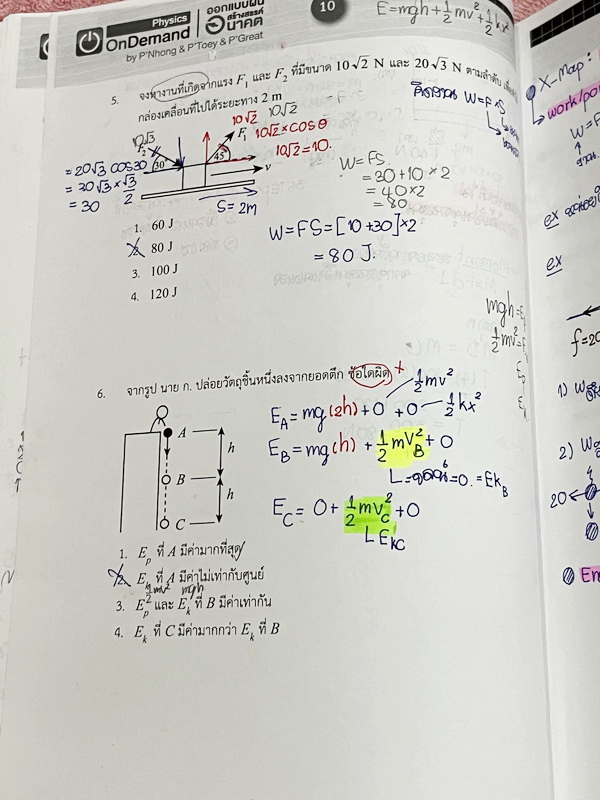 Physics
OnDemand
by P'Nhong & P'Toey & P'Great
ออกแบบฝัน
สร้างสรรค์
อนาคต
10
E=mgh+½mv²+½kx²
5. จงหางานที่เกิดจากแรง F₁ และ F₂ ที่มีขนาด 10√2 N และ 20√3 N ตามลำดับ
กล่องเคลื่อนที่ไปได้ระยะทาง 2 m
10√2 10√2
10√2×cosθ
10√2=10.
F₂ 30 45 F₁ v
=20√3 cos30
=20√3×√3/2
=30
S=2m
W=F×S
W=FS.
=30+10×2
=40×2
=80
W=FS=[10+30]×2
=80 J.
1. 60 J
2. 80 J
3. 100 J
4. 120 J
6. จากรูป นาย ก. ปล่อยวัตถุชิ้นหนึ่งลงจากยอดตึก ข้อใดผิด
½mv²
E_A=mg(2h)+0+0 ½kx²
E_B=mg(h)+½mv_B²+0
=0.=Ek_B
E_C=0+½mv_C²+0
E_kC
A
h
B
h
C
1. E_p ที่ A มีค่ามากที่สุด
2. E_k ที่ A มีค่าไม่เท่ากับศูนย์
½mv² mgh
3. E_p และ E_k ที่ B มีค่าเท่ากัน
4. E_k ที่ C มีค่ามากกว่า E_k ที่ B
mgh=
½mv²=
X-Map:
work/
W=F
ex
ex
f=20
1)
2)
20